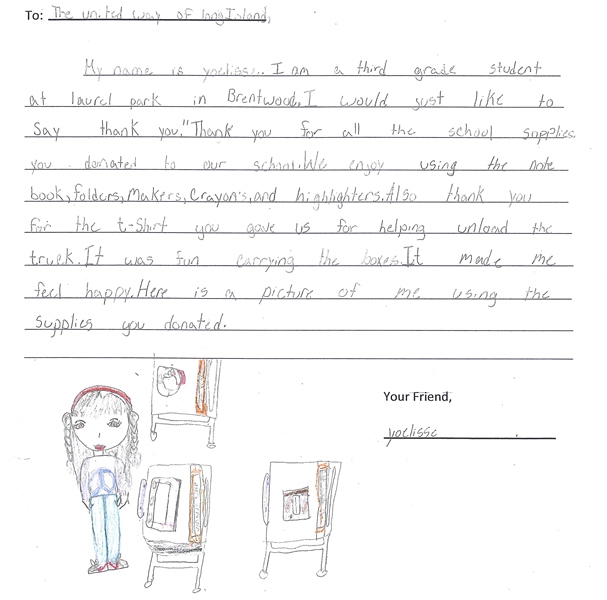 To: The united way of long Island,
My name is yoelisse.. I am a third grade student
at laurel park in Brentwood,I would just like to
Say thank you."Thank you for all the school supplies
you donated to our school.We enjoy using the note
book,folders,Makers,Crayon's,and highlighters.Also thank you
for the t-Shirt you gave us for helping unload the
truck.It was fun carrying the boxes.It made me
feel happy.Here is a picture of me using the
Supplies you donated.
Your Friend,
yoelisse